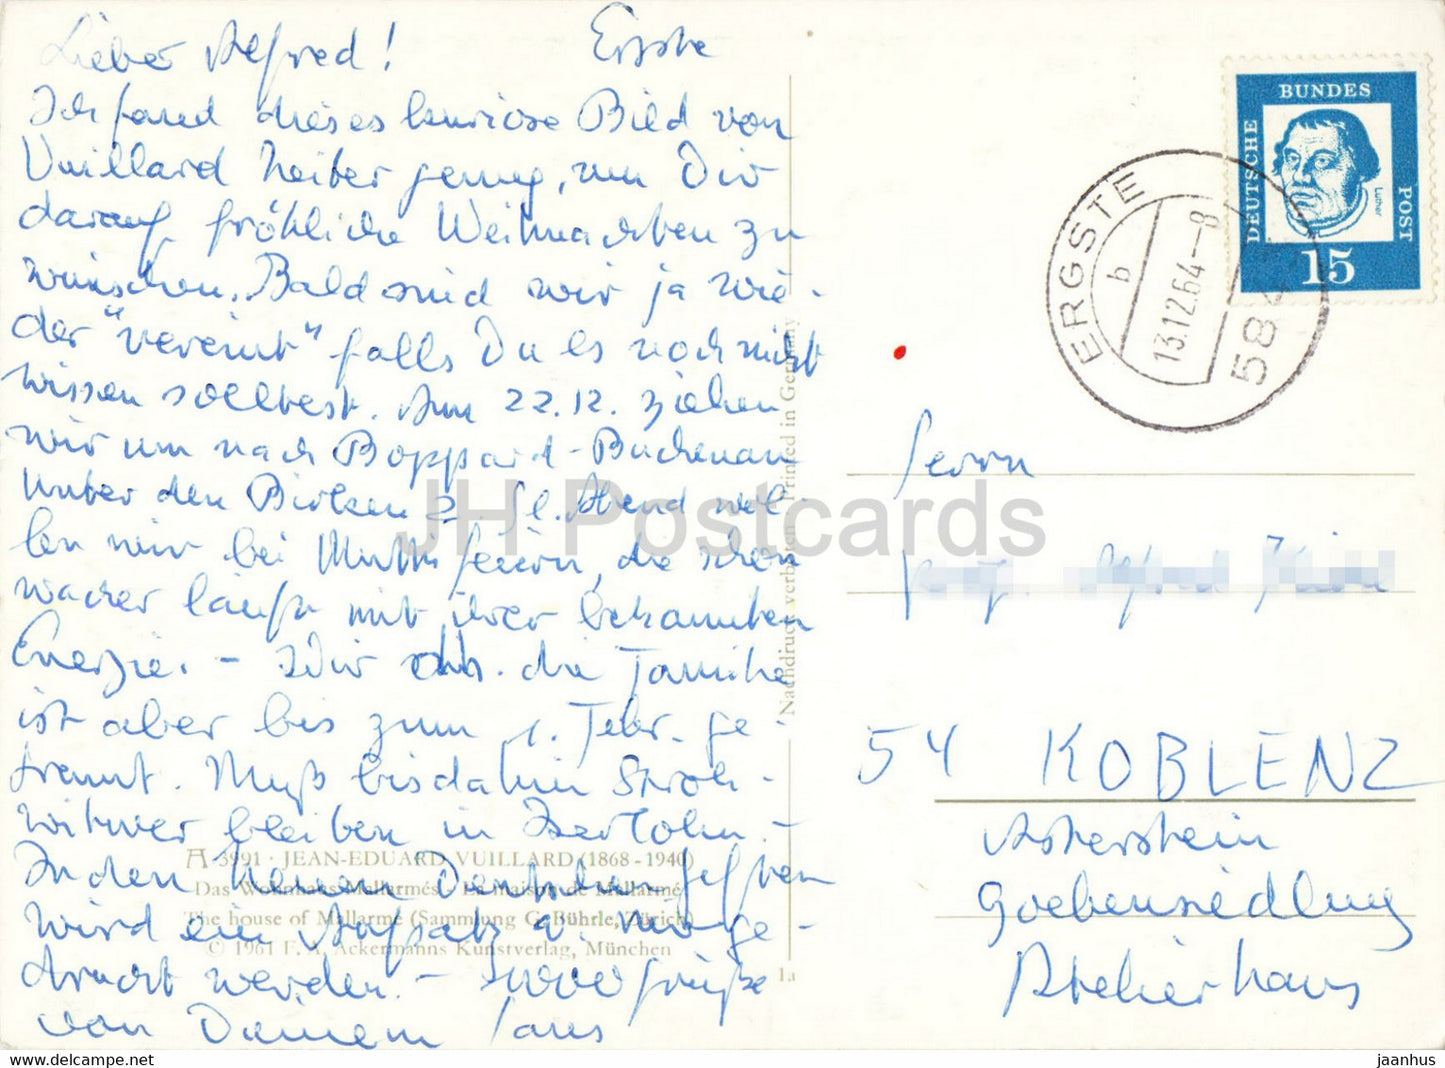 Lieber Alfred! Ergste
Ich fand dieses kuriose Bild von
Vuillard heiter genug, um Dir
darauf fröhliche Weihnachten zu
wünschen. Bald sind wir ja wie-
der "vereint" falls Du es noch nicht
wissen solltest. Am 22.12. ziehen
wir um nach Boppard-Buchenau
Unter den Birken 2. Hl. Abend wol-
len wir bei Mutti feiern, die schon
wacker läuft mit ihrer bekannten
Energie. - Wir d.h. die Familie
ist aber bis zum 1. Febr. ge-
trennt. Muß bis dahin Stroh-
witwer bleiben in Iserlohn. -
In den neuen Deutschen Heften
wird ein Aufsatz v. mir ge-
druckt werden. - 10000 Grüße
von Deinem Hans
A 3991 · JEAN-EDUARD VUILLARD (1868-1940)
Das Wohnhaus Mallarmés - La maison de Mallarmé
The house of Mallarmé (Sammlung G. Bührle, Zürich)
© 1961 F. A. Ackermanns Kunstverlag, München
1a
Nachdruck verboten Printed in Germany
DEUTSCHE
BUNDES
POST
Luther
15
ERGSTE
b
13.12.64-8
Herrn
Alfred
54 KOBLENZ
Asterstein
Goebensiedlung
Atelierhaus
JH Postcards
jaanhus